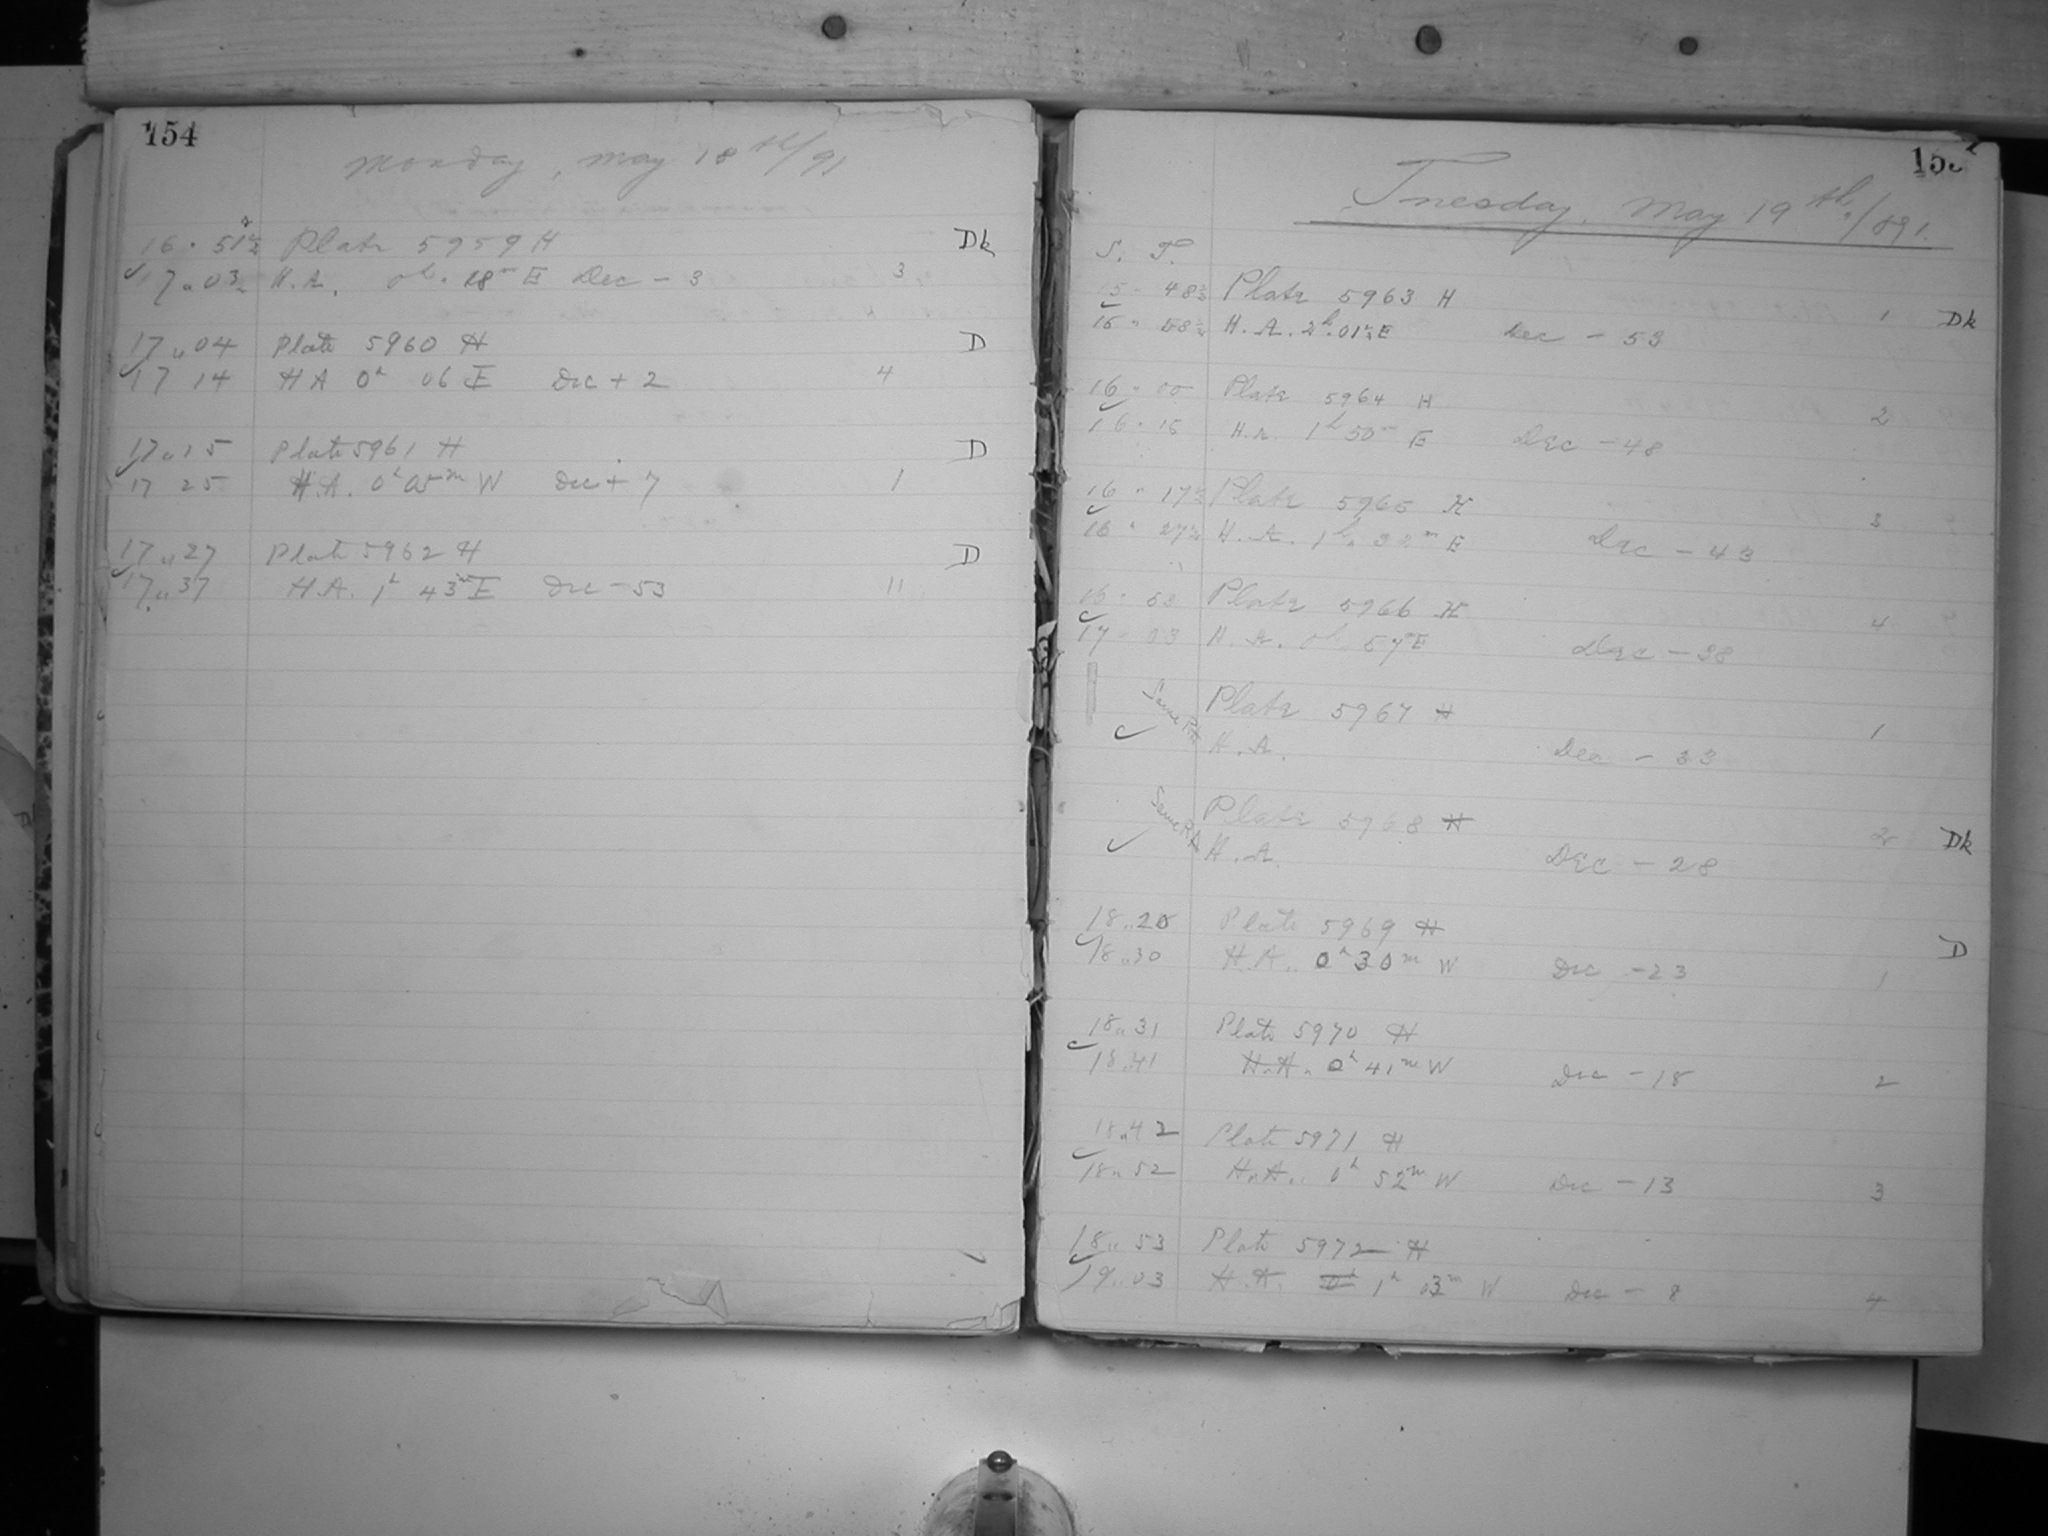 154
Monday, May 18th/91
16 " 51½ Plate 5959 H Dk
17 " 03½ H.A. 0h " 18m E Dec - 3 3
17 " 04 Plate 5960 H D
17 14 HA 0h 06 E Dec + 2 4
17 " 15 Plate 5961 H D
17 25 H.A. 0h 05m W Dec + 7 1
17 " 27 Plate 5962 H D
17 " 37 H.A. 1h 43m E Dec - 53 11
155
Tuesday, May 19th/891.
S. T.
15 " 48½ Plate 5963 H 1 Dk
15 " 58½ H.A. 2h.01½ E Dec - 53
16 " 00 Plate 5964 H 2
16 " 15 H.A. 1h 50m E Dec - 48
16 " 17½ Plate 5965 H 3
16 " 27½ H.A. 1h. 32m E Dec - 43
16 " 53 Plate 5966 H 4
17 " 03 H.A. 0h 57m E Dec - 38
Same RA Plate 5967 H 1
H.A. Dec - 33
Same RA Plate 5968 H 2 Dk
H.A. Dec - 28
18 " 20 Plate 5969 H D
18 " 30 H.A. 0h 30m W Dec - 23 1
18 " 31 Plate 5970 H
18 " 41 H.A. 0h 41m W Dec - 18 2
18 " 42 Plate 5971 H
18 " 52 H.A. 0h 52m W Dec - 13 3
18 " 53 Plate 5972 H
19 " 03 H.A. 1h 03m W Dec - 8 4